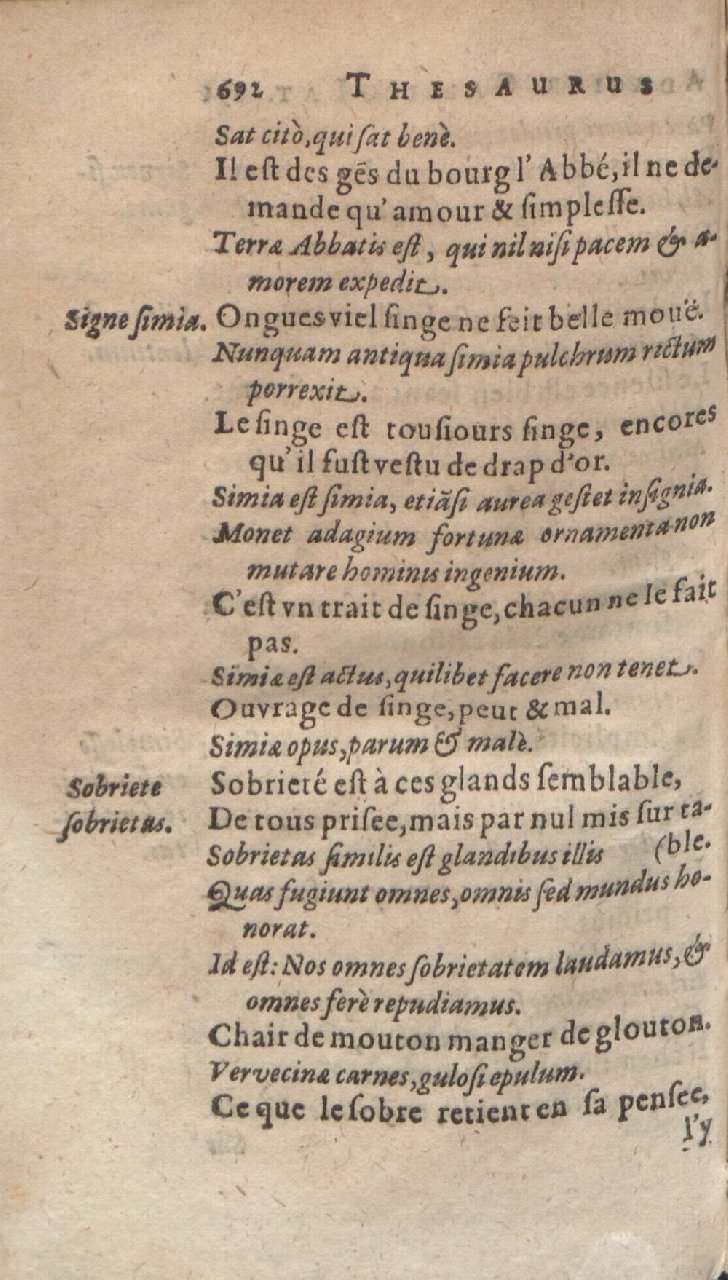 692 THESAURUS
Sat citò, qui ſat benè.
Il eſt des gẽs du bourg l'Abbé, il ne de-
mande qu'amour & ſimpleſſe.
Terræ Abbatis eſt, qui nil niſi pacem & a-
morem expedit.
Signe ſimia. Ongues viel ſinge ne feit belle mouë.
Nunquam antiqua ſimia pulchrum rictum
porrexit.
Le ſinge eſt touſiours ſinge, encores
qu'il fuſt veſtu de drap d'or.
Simia eſt ſimia, etiãſi aurea geſtet inſignia.
Monet adagium fortunæ ornamenta non
mutare hominis ingenium.
C'eſt vn trait de ſinge, chacun ne le fait
pas.
Simiæ eſt actus, quilibet facere non tenet.
Ouvrage de ſinge, peut & mal.
Simiæ opus, parum & malè.
Sobriete Sobrieté eſt à ces glands ſemblable,
ſobrietas. De tous priſee, mais par nul mis ſur ta-
Sobrietas ſimilis eſt glandibus illis (ble.
Quas fugiunt omnes, omnis ſed mundus ho-
norat.
Id eſt: Nos omnes ſobrietatem laudamus, &
omnes ferè repudiamus.
Chair de mouton manger de glouton.
Vervecinæ carnes, guloſi epulum.
Ce que le ſobre retient en ſa penſee,
l'y